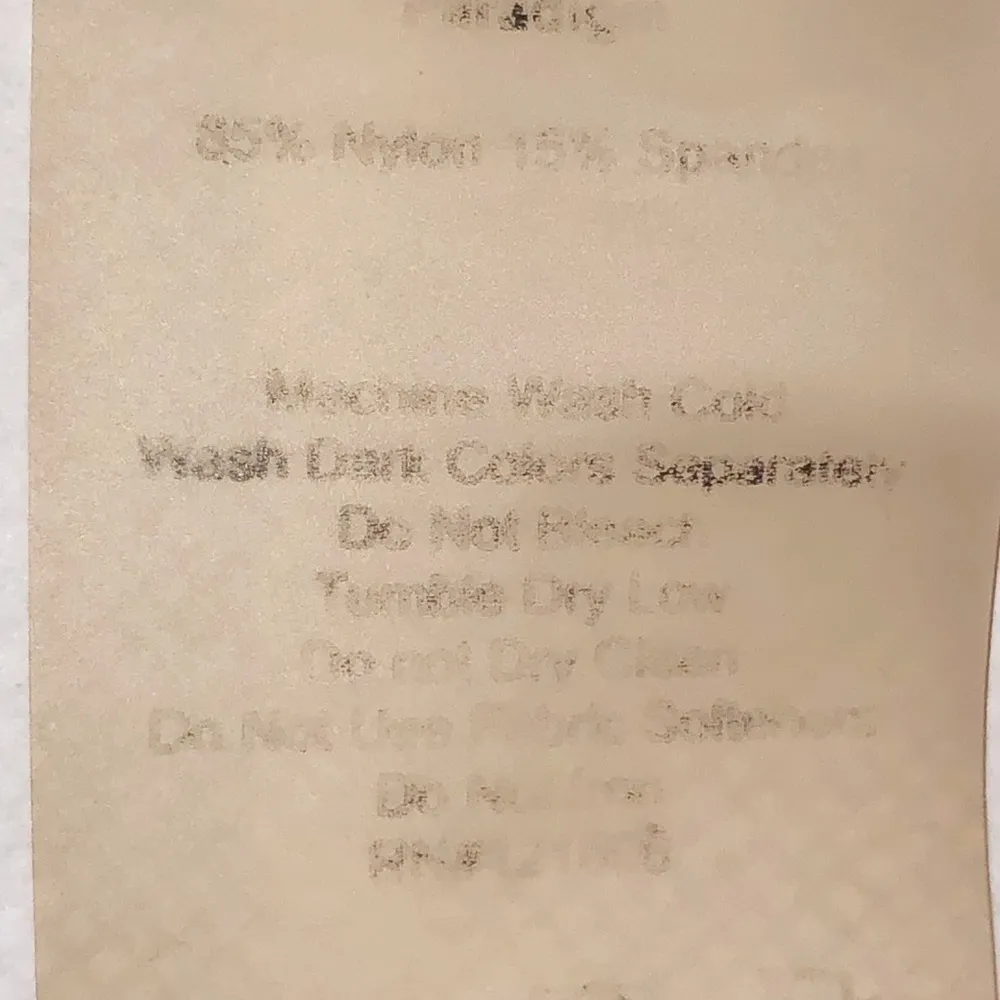 85% Nylon 15% Spandex
Machine Wash Cold
Wash Dark Colors Separately
Do Not Bleach
Tumble Dry Low
Do not Dry Clean
Do Not Use Fabric Softeners
Do Not Iron